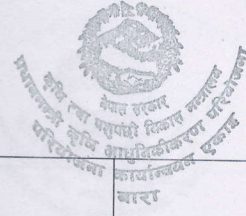 नेपाल सरकार
कृषि तथा पशुपंछी विकास मन्त्रालय
प्रधानमन्त्री कृषि आधुनिकीकरण परियोजना
परियोजना कार्यान्वयन एकाइ
बारा